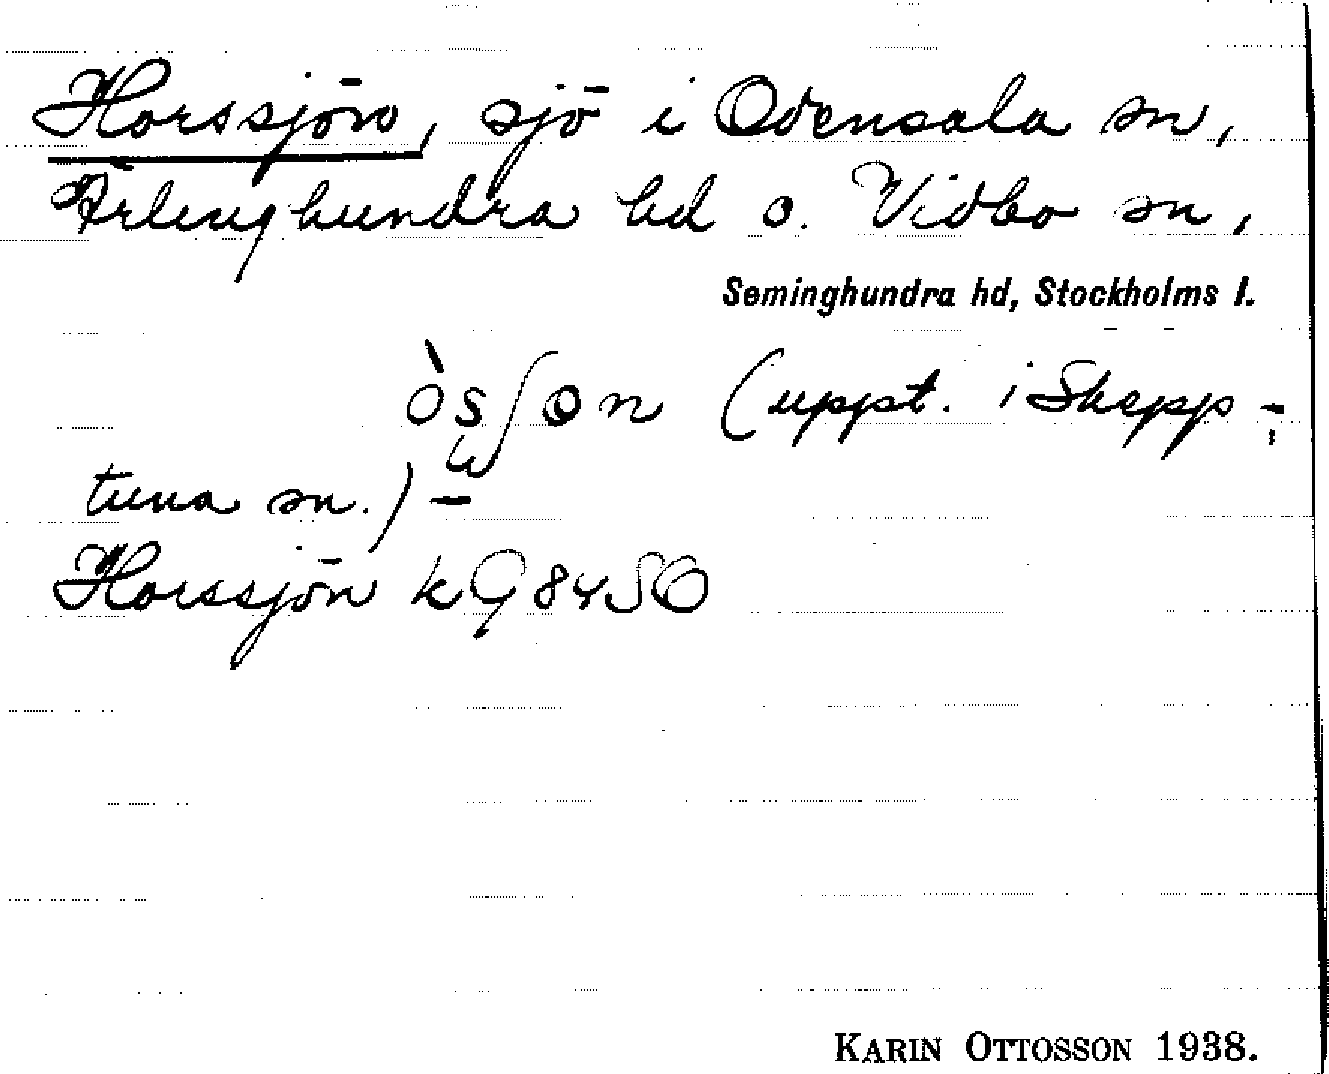 Horssjön, sjö i Odensala sn,
Ärlinghundra hd o. Vidbo sn,
Seminghundra hd, Stockholms l.
(uppt. i Skepp-
tuna sn.) –
Horssjön kG 8450
KARIN OTTOSSON 1938.